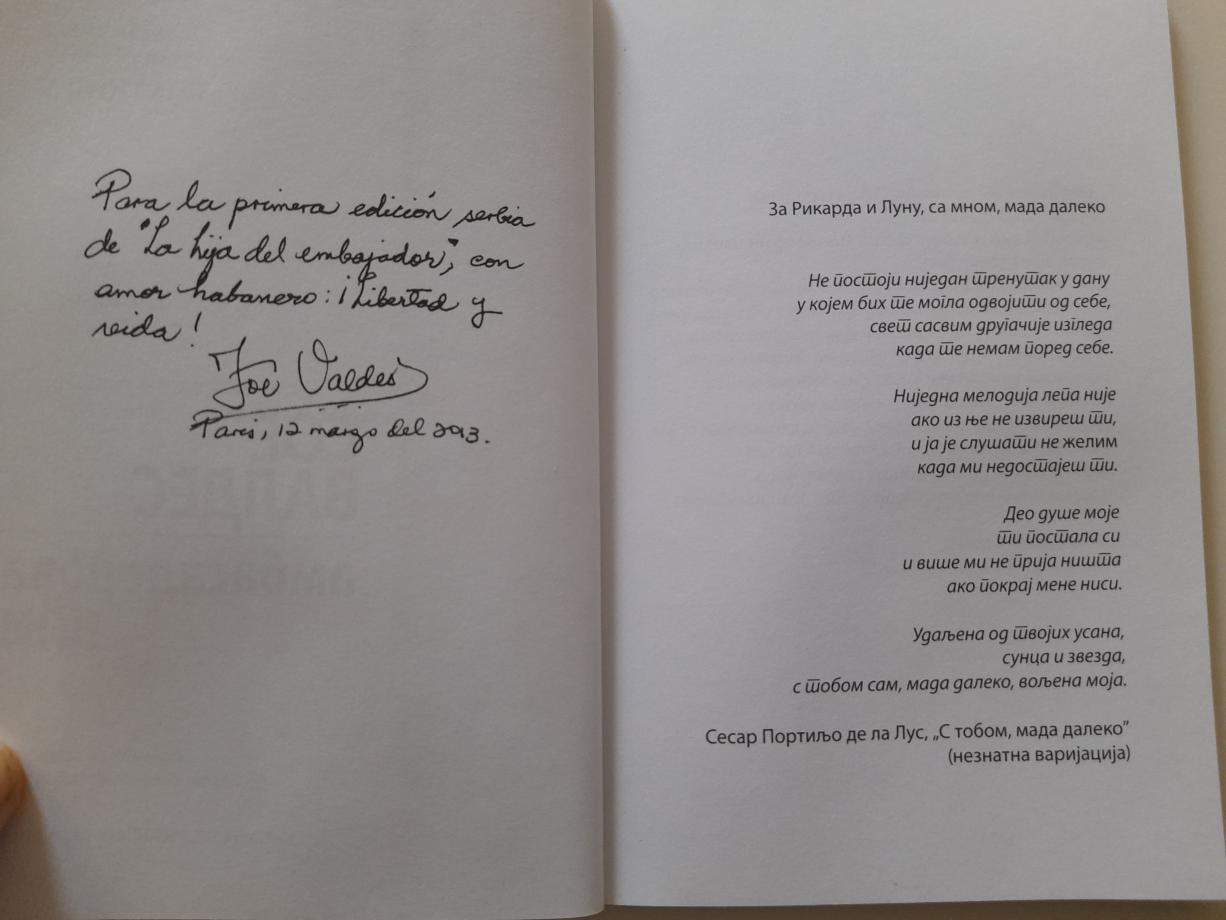 Para la primera edición serbia
de "La hija del embajador", con
amor habanero: ¡Libertad y
vida!
Zoé Valdés
París, 12 marzo del 2013.
За Рикарда и Луну, са мном, мада далеко
Не постоји ниједан тренутак у дану
у којем бих те могла одвојити од себе,
свет сасвим другачије изгледа
када те немам поред себе.
Ниједна мелодија лепа није
ако из ње не извиреш ти,
и ја је слушати не желим
када ми недостајеш ти.
Део душе моје
ти постала си
и више ми не прија ништа
ако покрај мене ниси.
Удаљена од твојих усана,
сунца и звезда,
с тобом сам, мада далеко, вољена моја.
Сесар Портиљо де ла Лус, „С тобом, мада далеко”
(незнатна варијација)